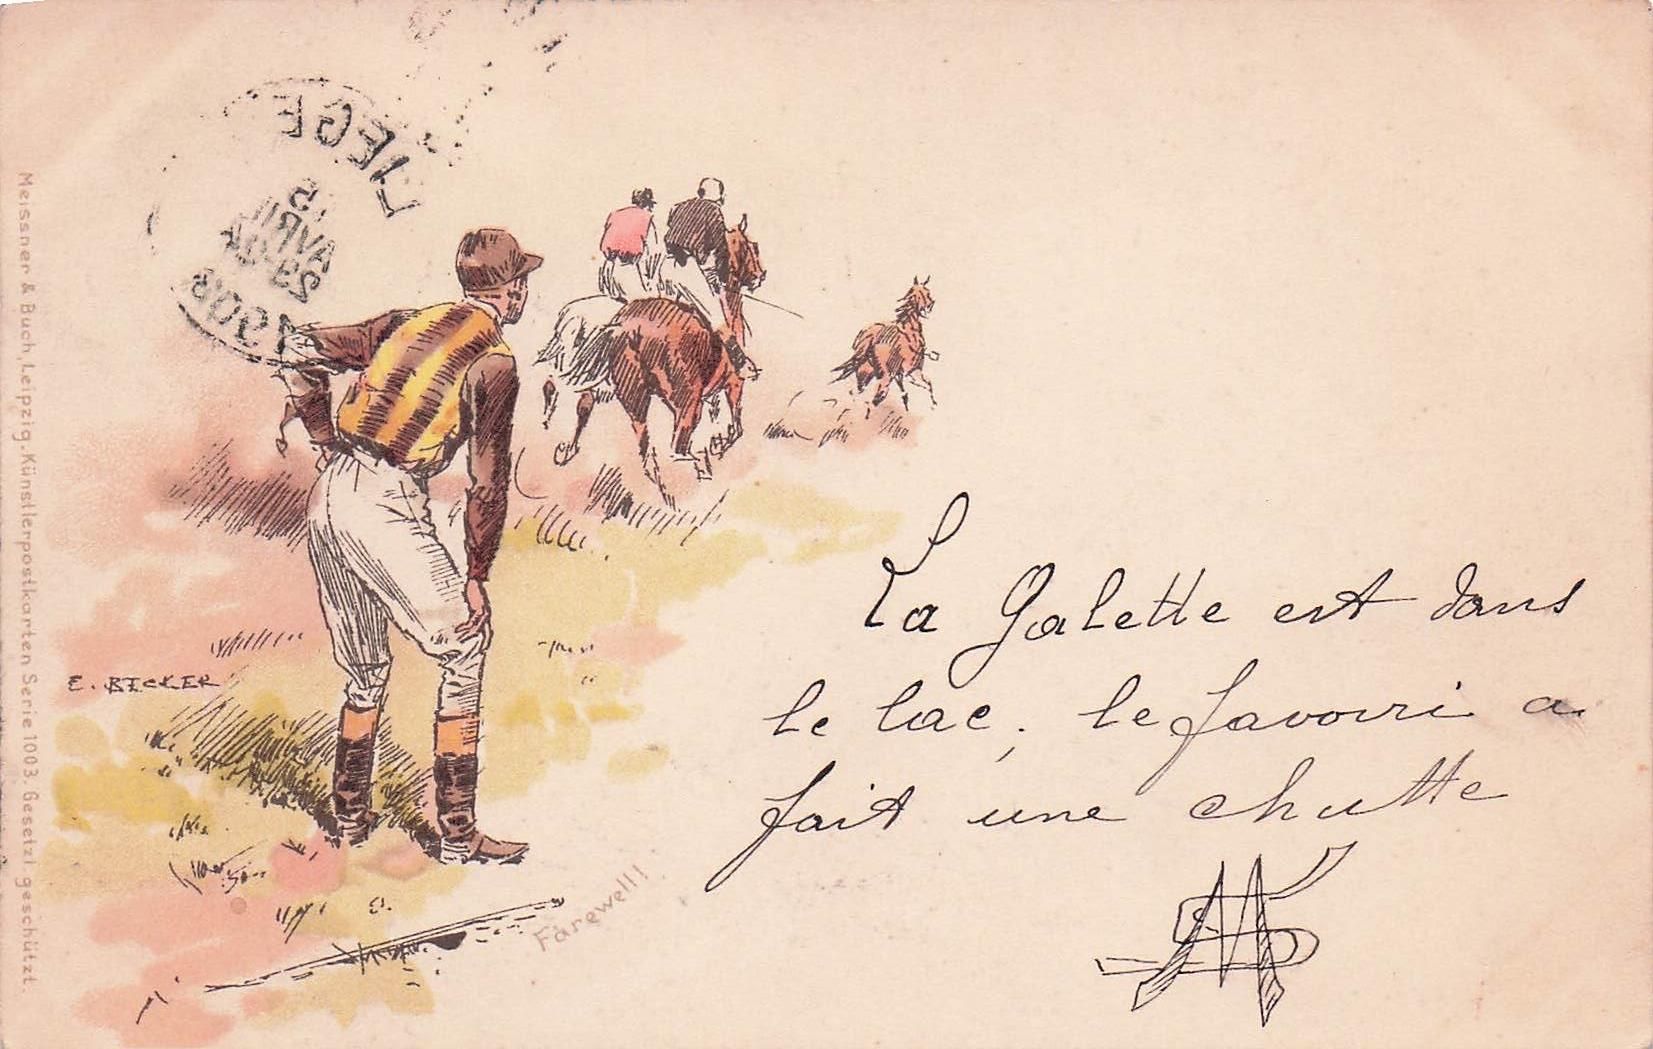 LIEGE
5
AVRIL
1903
Meissner & Buch, Leipzig. Künstlerpostkarten Serie 1003. Gesetzl. geschützt.
E. BECKER
Farewell!
La galette est dans
le lac, le favori a
fait une chutte